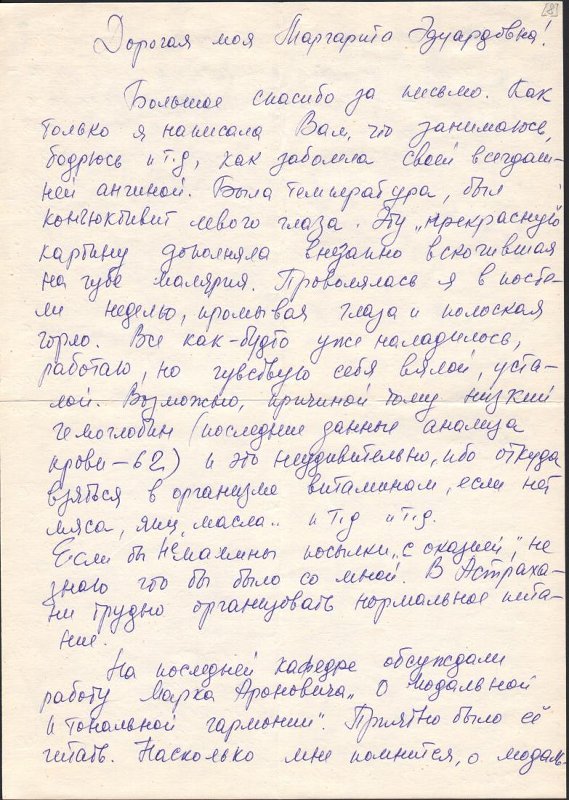 [8]
Дорогая моя Маргарита Эдуардовна!
Большое спасибо за письмо. Как
только я написала Вам, что занимаюсь,
бодрюсь и т.д., как заболела своей всегдаш-
ней ангиной. Была температура, был
коньюктивит левого глаза. Эту „прекрасную
картину дополняла внезапно вскочившая
на губе малярия. Провалялась я в посте-
ли неделю, промывая глаза и полоская
горло. Все как-будто уже наладилось,
работаю, но чувствую себя вялой, уста-
лой. Возможно, причиной тому низкий
гемоглобин (последние данные анализа
крови – 62) и это неудивительно, ибо откуда
взяться в организме витаминам, если нет
мяса, яиц, масла.. и т.д и т.д.
Если бы не мамины посылки „с оказией", не
знаю что бы было со мной. В Астраха-
ни трудно организовать нормальное пита-
ние.
На последней кафедре обсуждали
работу Марка Ароновича „О модальной
и тональной гармонии". Приятно было её
читать. Насколько мне помнится, о модаль-